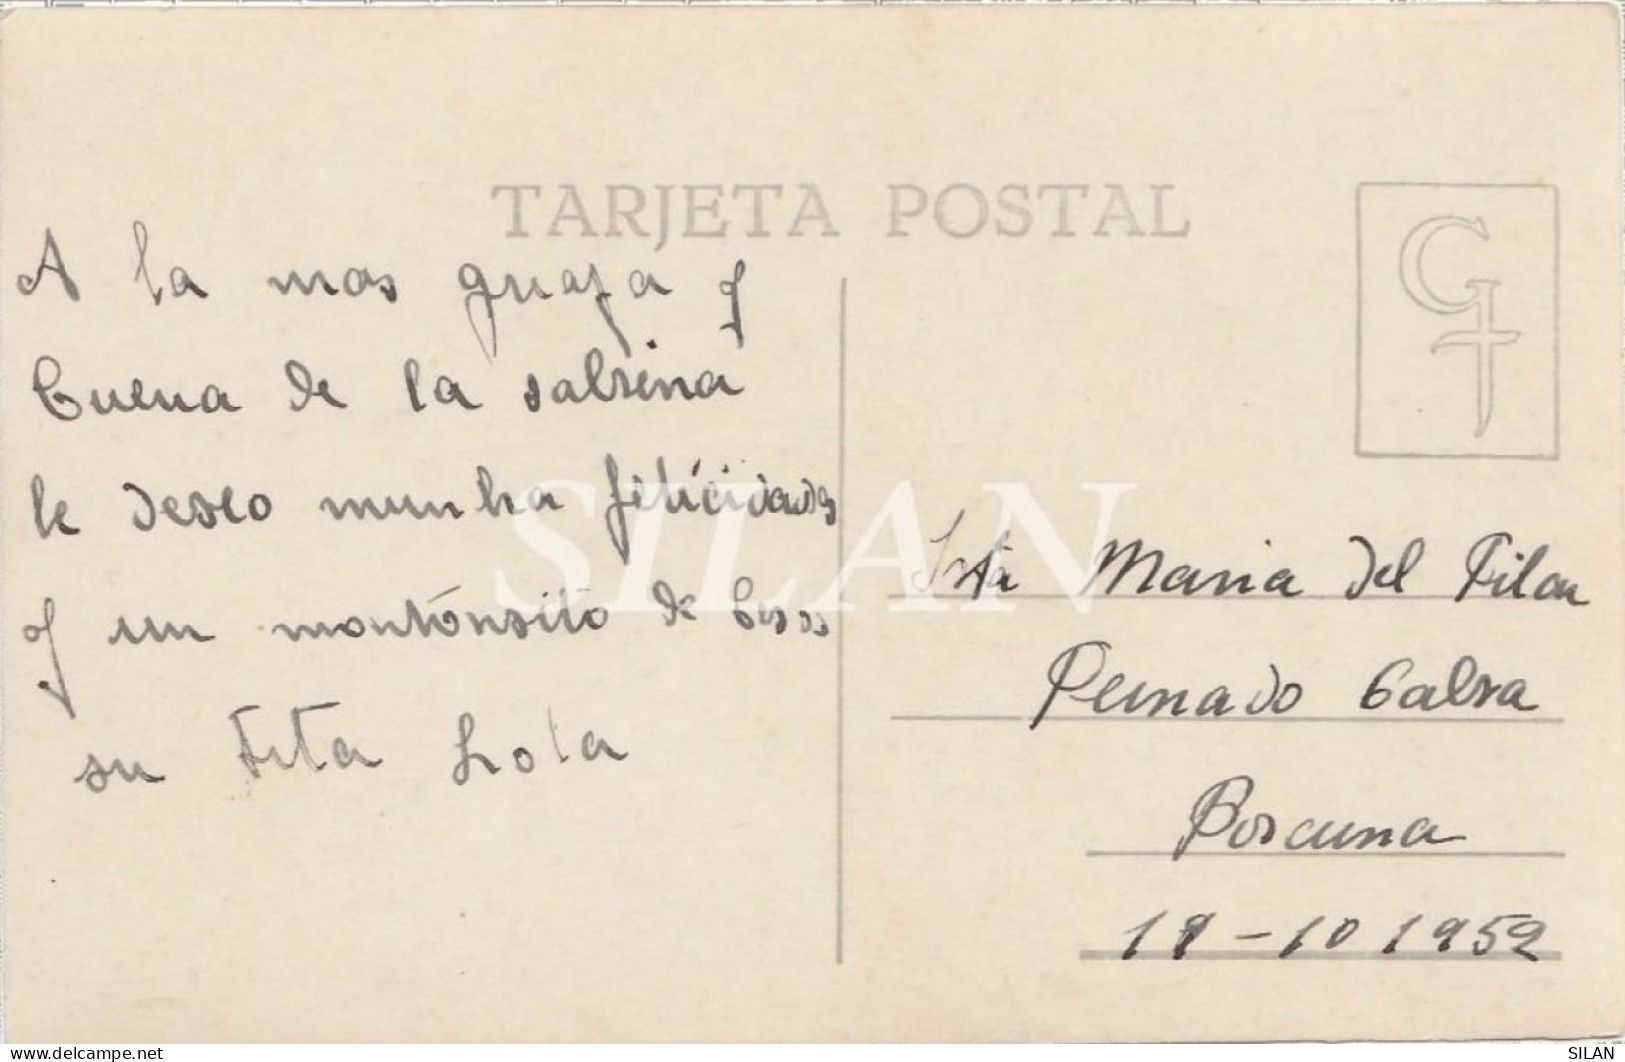 TARJETA POSTAL
A la mas guapa y
buena de la salsena
le deseo muncha felicidades
y un montonsito de besos
su tita Lola
Srta Maria del Pilar
Peinado Galva
Porcuna
- 10 1952
SILAN
https://www.delcampe.net
SILAN